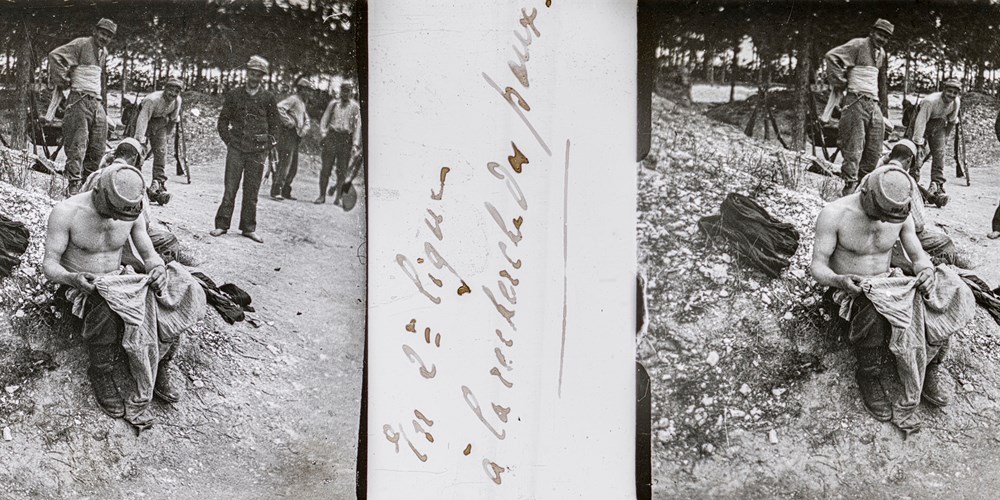 En 2e ligne
à la recherche des poux.